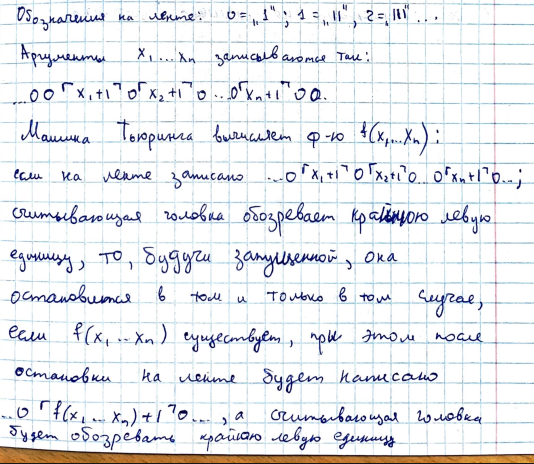 Обозначения на ленте: 0=„1"; 1=„11", 2=„111" ...
Аргументы x₁...xₙ записываются так:
...00⌜x₁+1⌝0⌜x₂+1⌝0...0⌜xₙ+1⌝00.
Машина Тьюринга вычисляет ф-ю f(x₁,...xₙ):
если на ленте записано ...0⌜x₁+1⌝0⌜x₂+1⌝0...0⌜xₙ+1⌝0...;
считывающая головка обозревает крайнюю левую
единицу, то, будучи запущенной, она
остановится в том и только в том случае,
если f(x₁...xₙ) существует, при этом после
остановки на ленте будет написано
...0⌜f(x₁...xₙ)+1⌝0..., а считывающая головка
будет обозревать крайнюю левую единицу